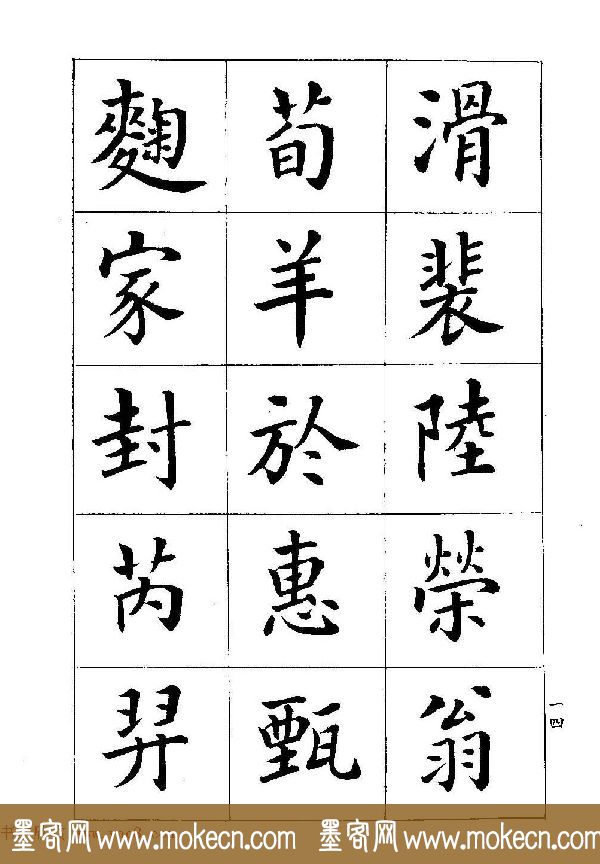 滑裴陸榮翁
荀羊於惠甄
麴家封芮羿
一四
墨客网 www.mokecn.com 墨客网 www.mokecn.com